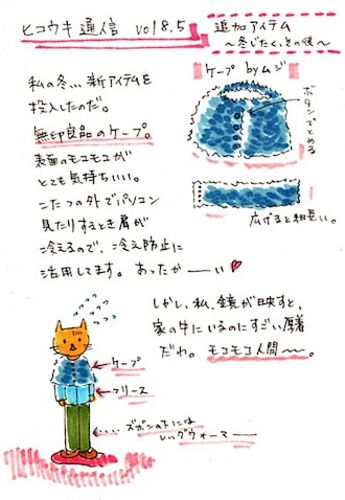 ヒコウキ通信 vol8.5
追加アイテム
〜冬じたく、その後〜
私の冬...新アイテムを
投入したのだ。
無印良品のケープ。
表面のモコモコが
とても気持ちいい。
こたつの外でパソコン
見たりするとき肩が
冷えるので、冷え防止に
活用してます。あったかーーい♥
ケープ by ムジ
ボタンでとめる
広げると細長い。
しかし、私、鏡が映すと、
家の中にいるのにすごい厚着
だわ。モコモコ人間〜〜。
ケープ
フリース
ズボンの下には
レッグウォーマー